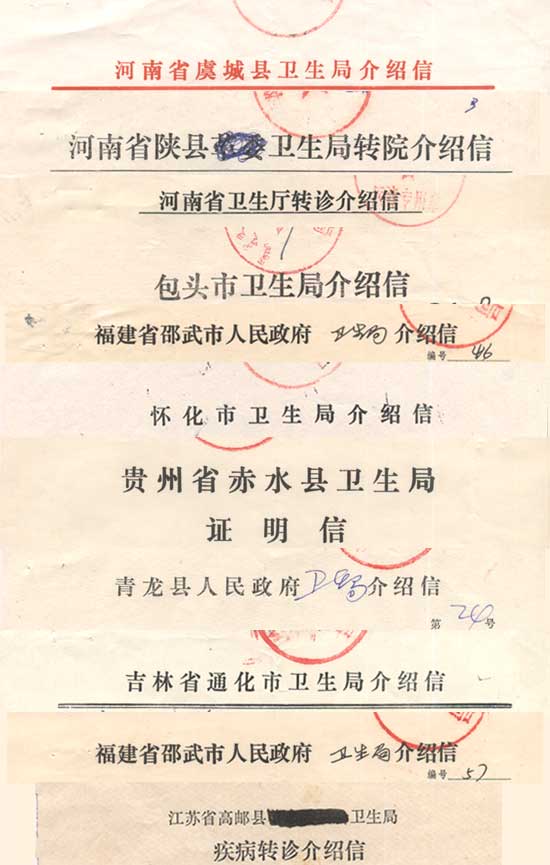 河南省虞城县卫生局介绍信
3
河南省陕县卫生局转院介绍信
河南省卫生厅转诊介绍信
包头市卫生局介绍信
福建省邵武市人民政府 卫生局 介绍信
编号 46
怀化市卫生局介绍信
贵州省赤水县卫生局
证明信
青龙县人民政府卫生局介绍信
第 24 号
吉林省通化市卫生局介绍信
福建省邵武市人民政府 卫生局介绍信
编号 57
江苏省高邮县 卫生局
疾病转诊介绍信